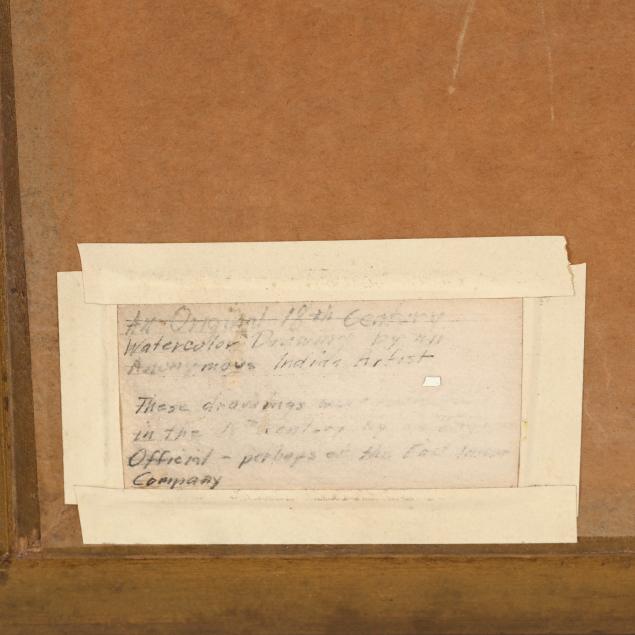 An Original 18th Century
Watercolor Drawing by an
Anonymous Indian Artist
These drawings were
in the Century by an
Official - perhaps of the East
Company